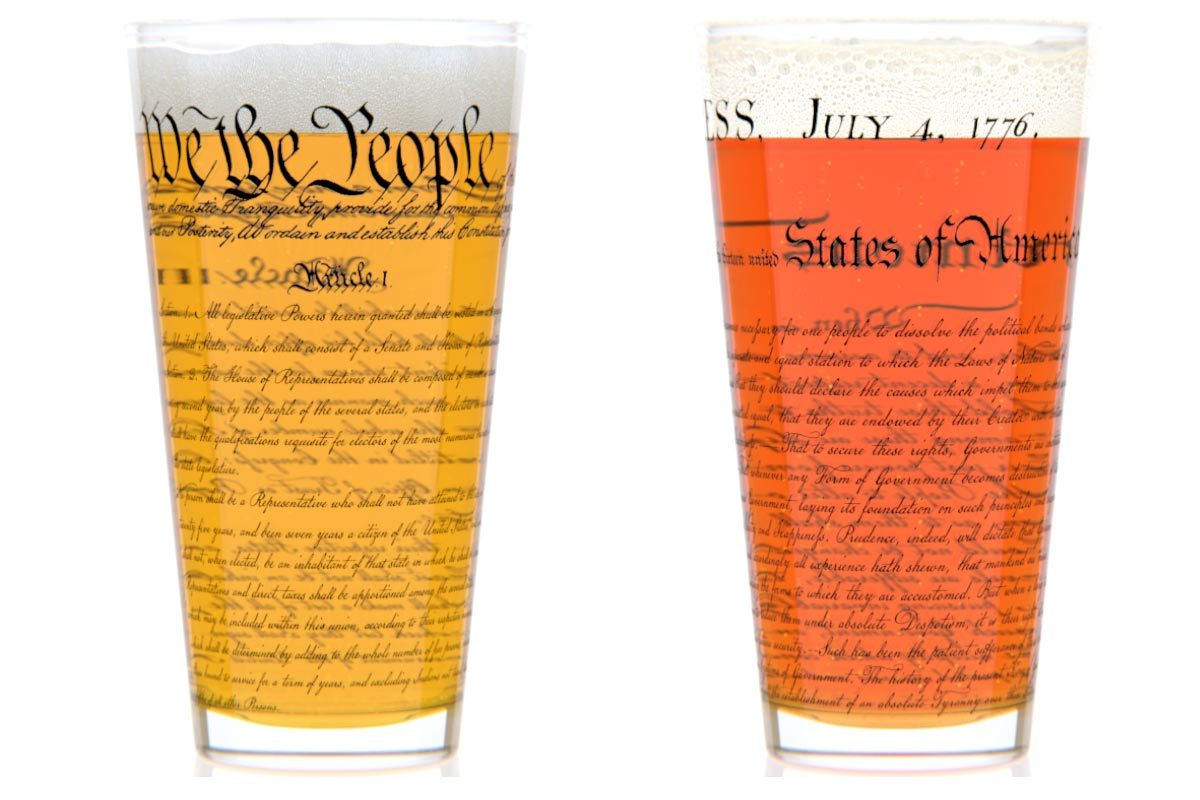 We the People
domestic Tranquility, provide for the common
Posterity, do ordain and establish this Constitution
Article I.
All legislative Powers herein granted shall be vested
United States, which shall consist of a Senate and House of
2. The House of Representatives shall be composed of
second year by the people of the several states, and the electors
have the qualifications requisite for electors of the most numerous
state legislature.
person shall be a Representative who shall not have attained to the
twenty five years, and been seven years a citizen of the United States,
not, when elected, be an inhabitant of that state in which he shall
Representatives and direct taxes shall be apportioned among the several
may be included within this union, according to their respective
shall be determined by adding to the whole number of free persons,
bound to service for a term of years, and excluding Indians not
of all other Persons.
ESS, JULY 4, 1776.
united States of America
necessary for one people to dissolve the political bands
and equal station to which the Laws of Nature
that they should declare the causes which impel them to
equal, that they are endowed by their Creator
That to secure these rights, Governments are
whenever any Form of Government becomes destructive
laying its foundation on such principles and
and Happineſs. Prudence, indeed, will dictate that
accordingly all experience hath shewn, that mankind
the forms to which they are accustomed. But when a long
them under absolute Despotism, it is their
security.—Such has been the patient sufferance
of Government. The history of the present
the establishment of an absolute Tyranny over